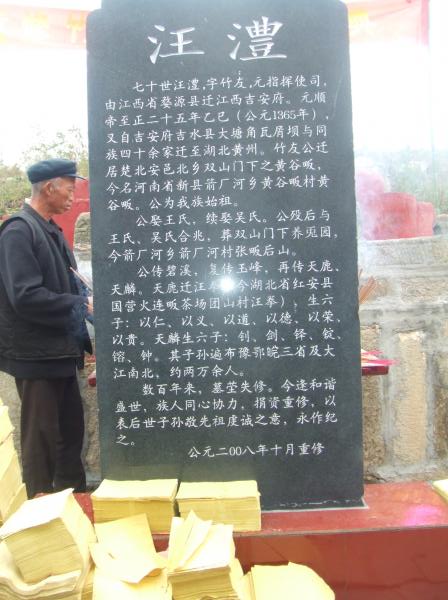 汪澧
七十世汪澧,字竹友,元指挥使司,
由江西省婺源县迁江西吉安府。元顺
帝至正二十五年乙巳(公元1365年),
又自吉安府吉水县大塘角瓦屑坝与同
族四十余家迁至湖北黄州。竹友公迁
居楚北安邑北乡双山门下之黄谷畈,
今名河南省新县箭厂河乡黄谷畈村黄
谷畈。公为我族始祖。
公娶王氏,续娶吴氏。公殁后与
王氏、吴氏合兆,葬双山门下养兎园,
今箭厂河乡箭厂河村张畈后山。
公传碧溪,复传玉峰,再传天鹿、
天麟。天鹿迁江拳(今湖北省红安县
国营火连畈茶场团山村汪拳),生六
子:以仁、以义、以道、以德、以荣、
以贵。天麟生六子:钊、剑、铎、锭、
镕、钟。其子孙遍布豫鄂皖三省及大
江南北,约两万余人。
数百年来,墓茔失修。今逢和谐
盛世,族人同心协力,捐资重修,以
表后世子孙敬先祖虔诚之意,永作纪
之。
公元二00八年十月重修